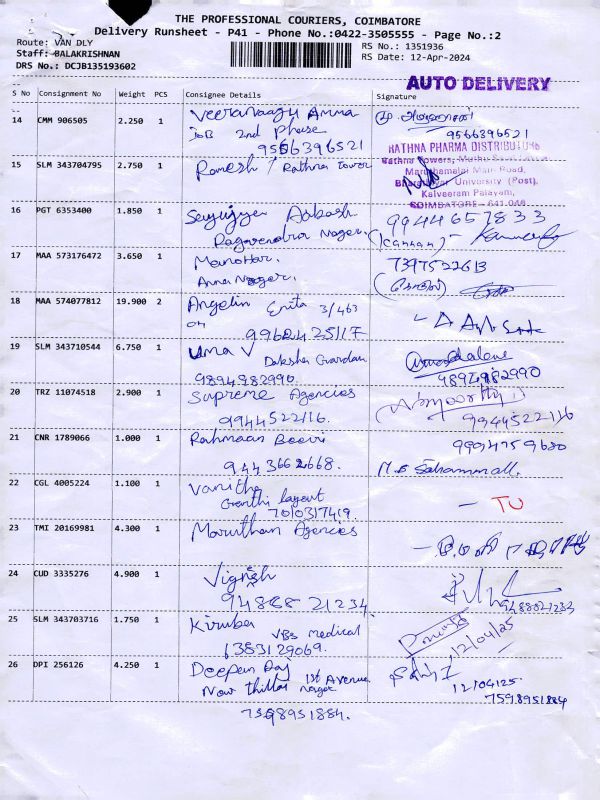 THE PROFESSIONAL COURIERS, COIMBATORE
Delivery Runsheet - P41 - Phone No.:0422-3505555 - Page No.:2
Route: VAN DLY
Staff: BALAKRISHNAN
DRS No.: DCJB135193602
RS No.: 1351936
RS Date: 12-Apr-2024
AUTO DELIVERY
S No Consignment No Weight PCS Consignee Details Signature
14 CMM 906505 2.250 1 Veeranaagu Amma
2nd Phase
9566396521
9566396521
RATHNA PHARMA DISTRIBUTORS
15 SLM 343704795 2.750 1 Ramesh / Rathna tower
Rathna Towers,
Maruthamalai Main Road,
Bharathiyar University (Post),
Kalveeram Palayam,
COIMBATORE - 641 046
16 PGT 6353400 1.850 1 Aakash 9944657833
Ragavendra Nagar (Kannan)
17 MAA 573176472 3.650 1 Manohar. 7397522613
Anna Nagar.
18 MAA 574077812 19.900 2 Angelin Enita 3/463
9962425117
19 SLM 343710544 6.750 1 Uma V Daksha Guardan
9894982990 9894982990
20 TRZ 11074518 2.900 1 Supreme Agencies
9944522116. 9944522116
21 CNR 1789066 1.000 1 Rahmaan Beevi
9443662668.
22 CGL 4005224 1.100 1 Vanitha
Ganthi layout
7010317419
23 TMI 20169981 4.300 1 Maruthan Agencies
24 CUD 3335276 4.900 1 Vignesh
94888 21234. 9488821234
25 SLM 343703716 1.750 1 Kiruba
VBS medical
6383129069. 12/04/25
26 DPI 256126 4.250 1 Deepan Raj 1st Avenue
New thillai nagar 12/04/25.
7598951884
7598951884.